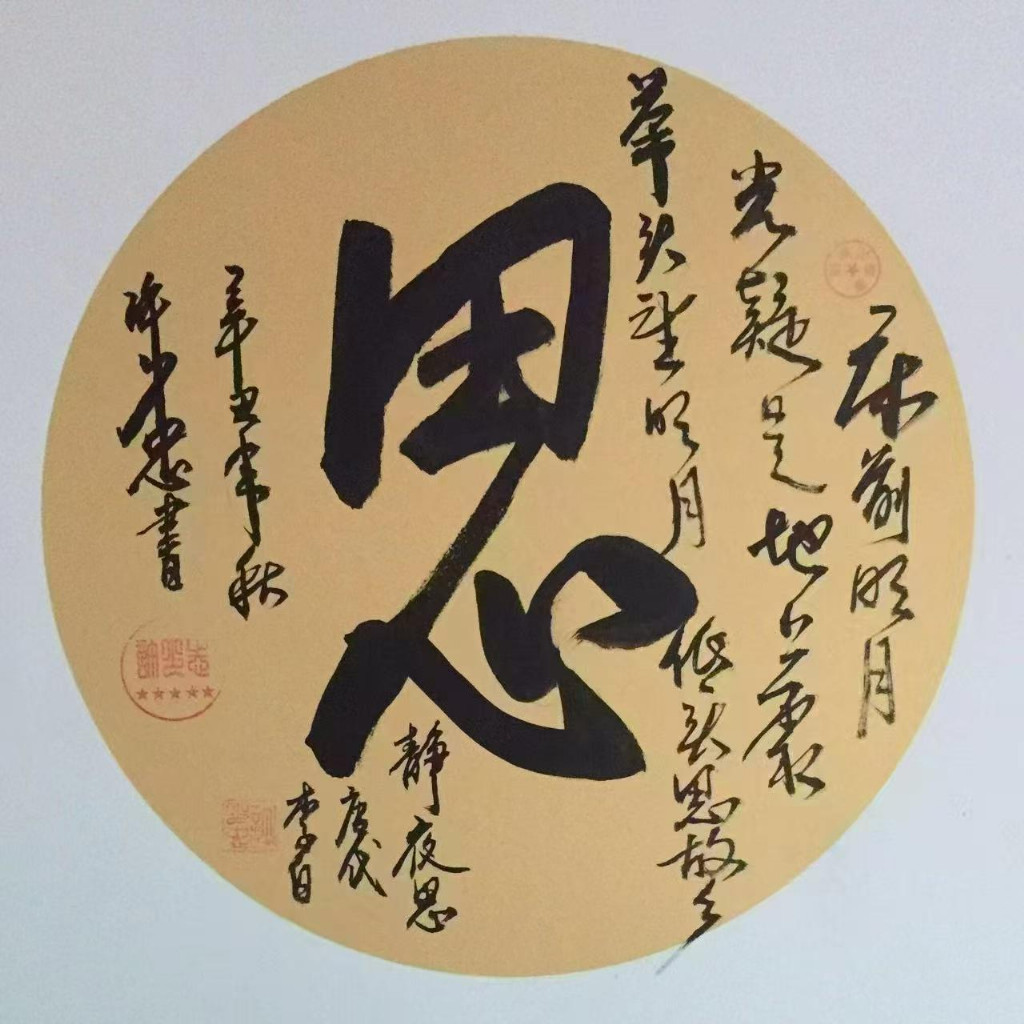 床前明月
光疑是地上霜
举头望明月
低头思故乡
思
静夜思
唐代
李白
辛丑年秋
許忠書